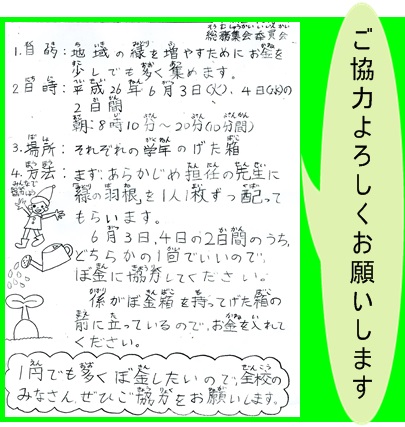 総務集会委員会
1.目的:地域の緑を増やすためにお金を
少しでも多く集めます。
2.日時:平成26年6月3日(火)、4日(水)の
2日間
朝:8時10分~20分(10分間)
3.場所:それぞれの学年のげた箱
4.方法:まず、あらかじめ担任の先生に
緑の羽根を1人1枚ずつ配って
もらいます。
6月3日、4日の2日間のうち、
どちらかの1回でいいので、
ぼ金に協力してください。
係がぼ金箱を持ってげた箱の
前に立っているので、お金を入れて
ください。
みんなで協力しよう
1円でも多くぼ金したいので、全校の
みなさん、ぜひご協力をお願いします。
ご協力よろしくお願いします